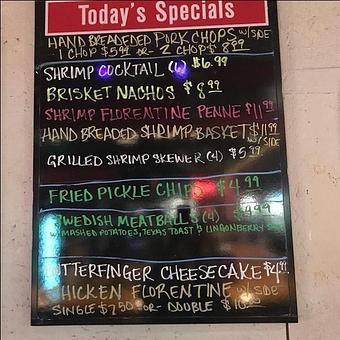 Today's Specials
HAND BREADEDED PORK CHOPS w/SIDE
1 CHOP $5.99 -OR- 2 CHOP $8.99
SHRIMP COCKTAIL (6) $6.99
BRISKET NACHOS $8.99
SHRIMP FLORENTINE PENNE $11.99
HAND BREADED SHRIMP BASKET $11.99
w/SIDE
GRILLED SHRIMP SKEWER (4) $5.99
FRIED PICKLE CHIPS $4.99
SWEDISH MEATBALLS (4) $9.99
w/MASHED POTATOES, TEXAS TOAST & LINGONBERRY
BUTTERFINGER CHEESECAKE $4.99
CHICKEN FLORENTINE w/SIDE
SINGLE $7.50 -OR- DOUBLE